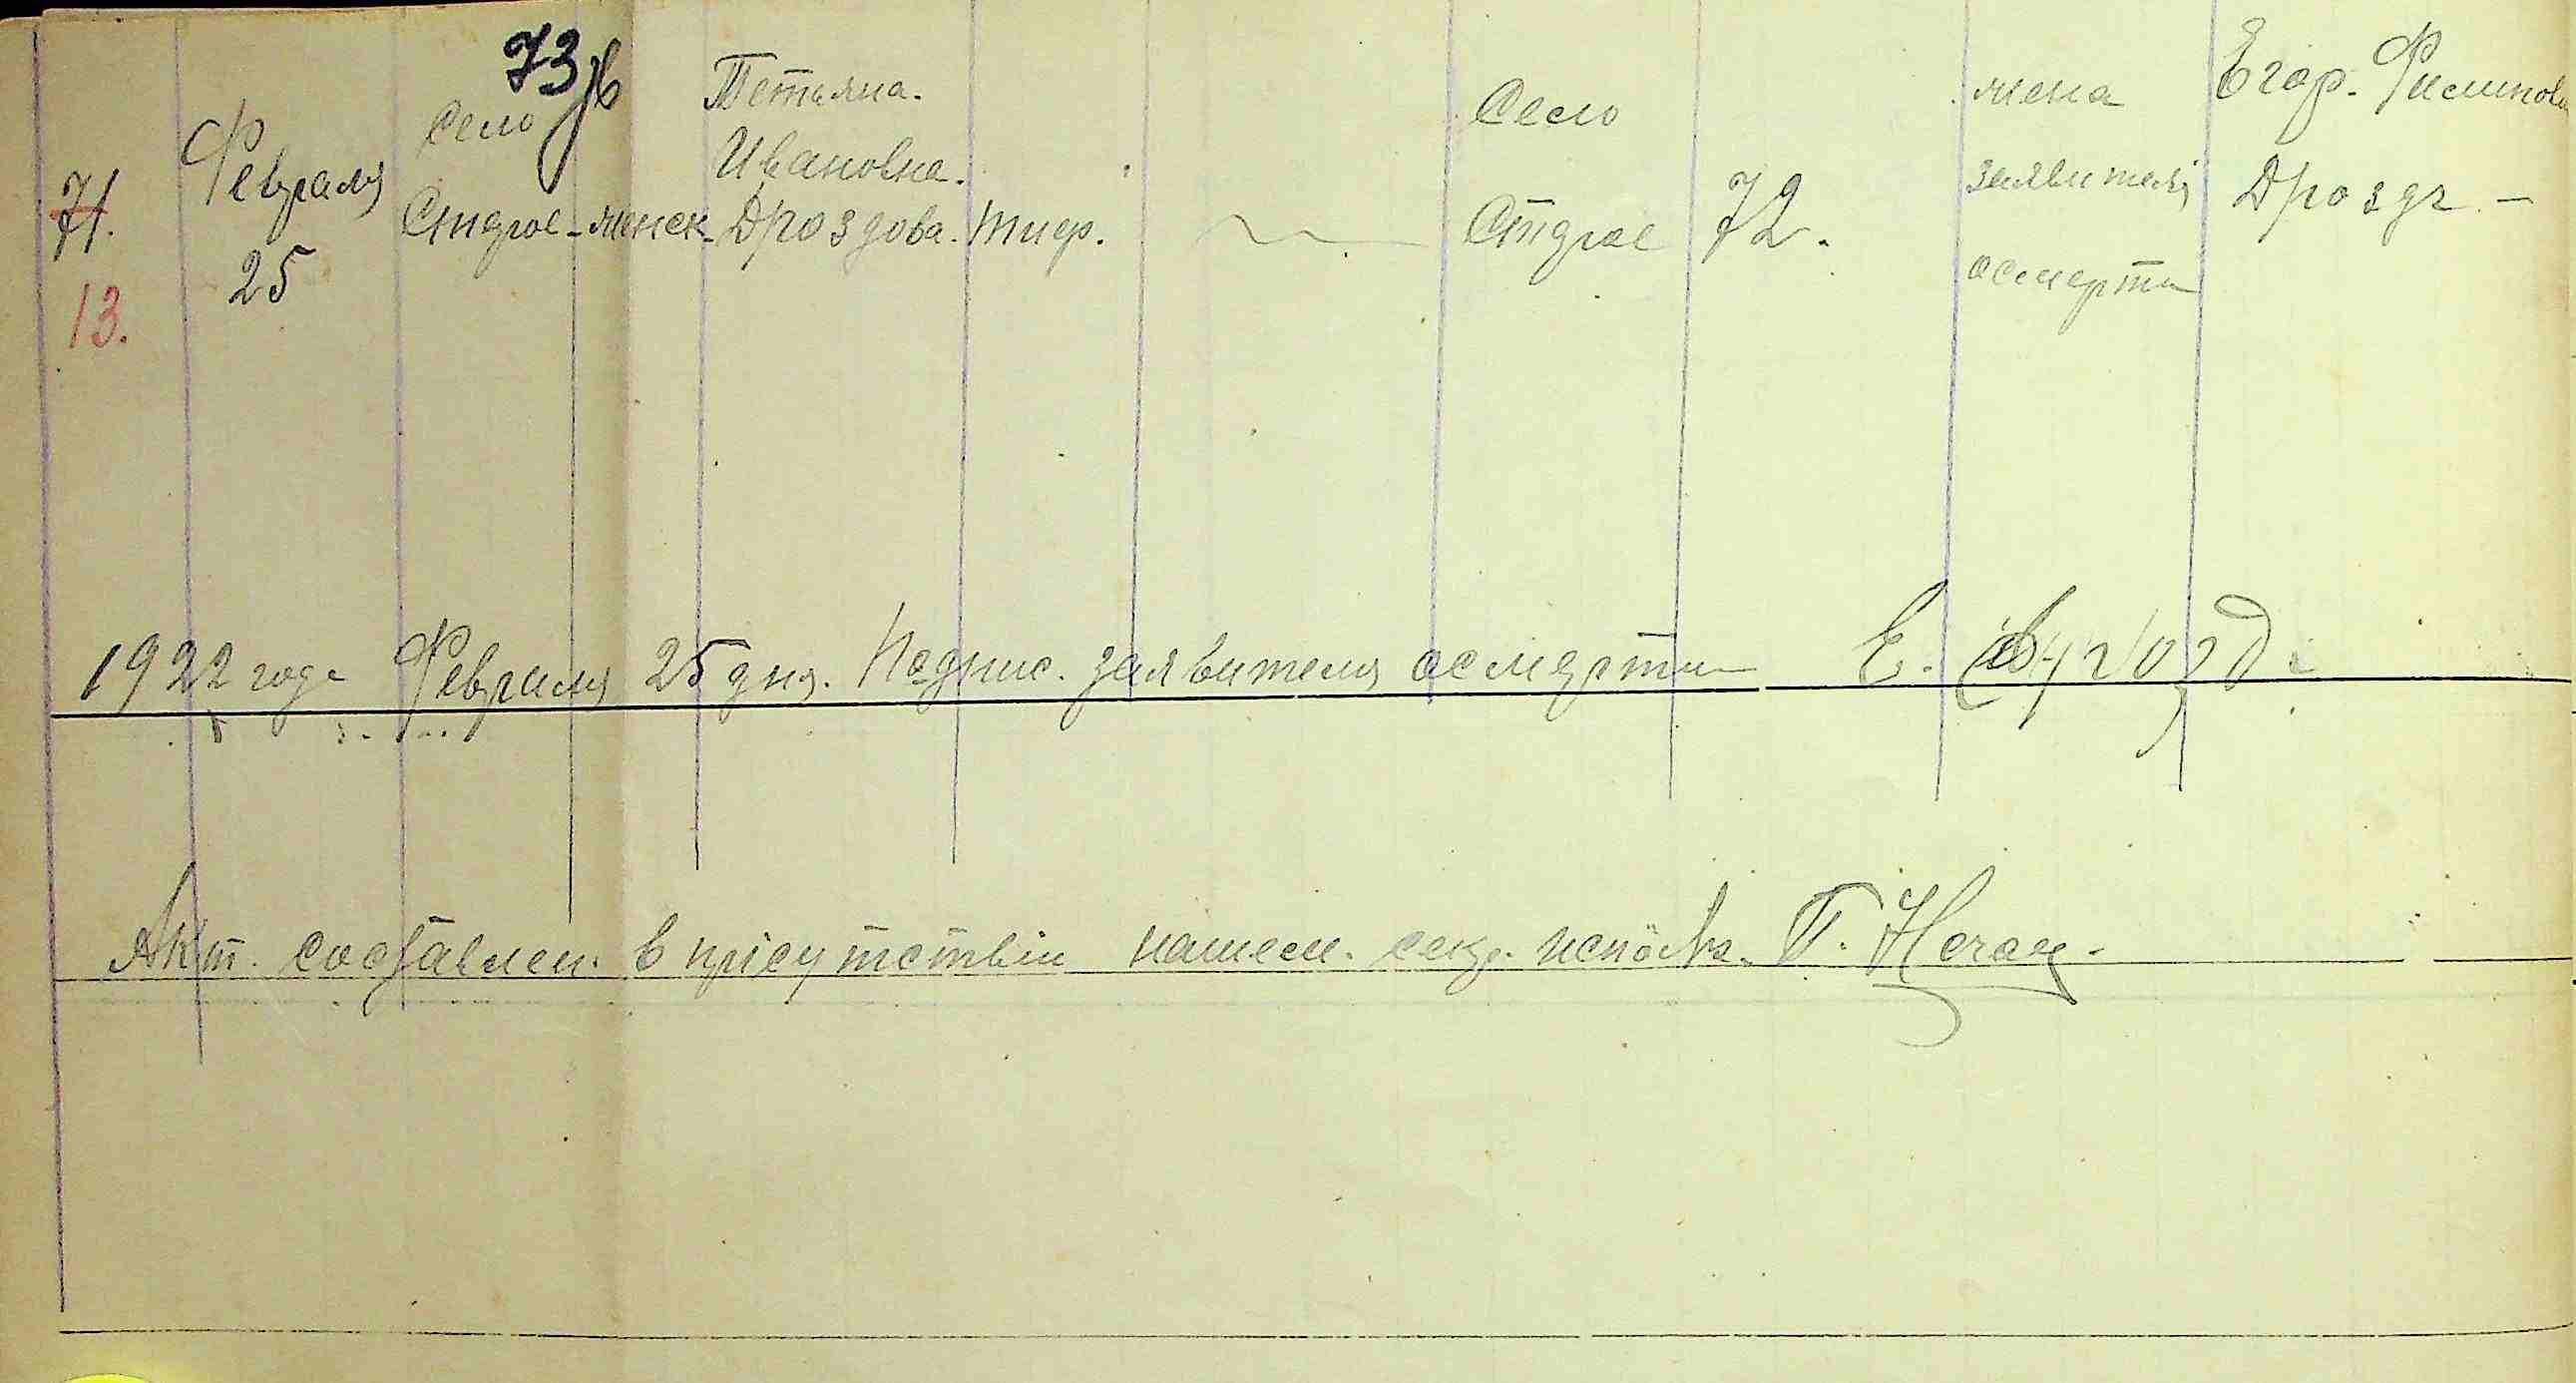 73
Февраля
25
71.
13.
Село
Старое
женск.
Тетьяна.
Ивановна.
Дроздова.
тиф.
Село
Старое
72.
жена
заявителя
осмерти
Егор. Филипов
Дрозд
1922 года Февраля 25 дня. Подпис. заявителя осмерти Е. Дрозд
Акт. составлен. в прісутствіи секр.